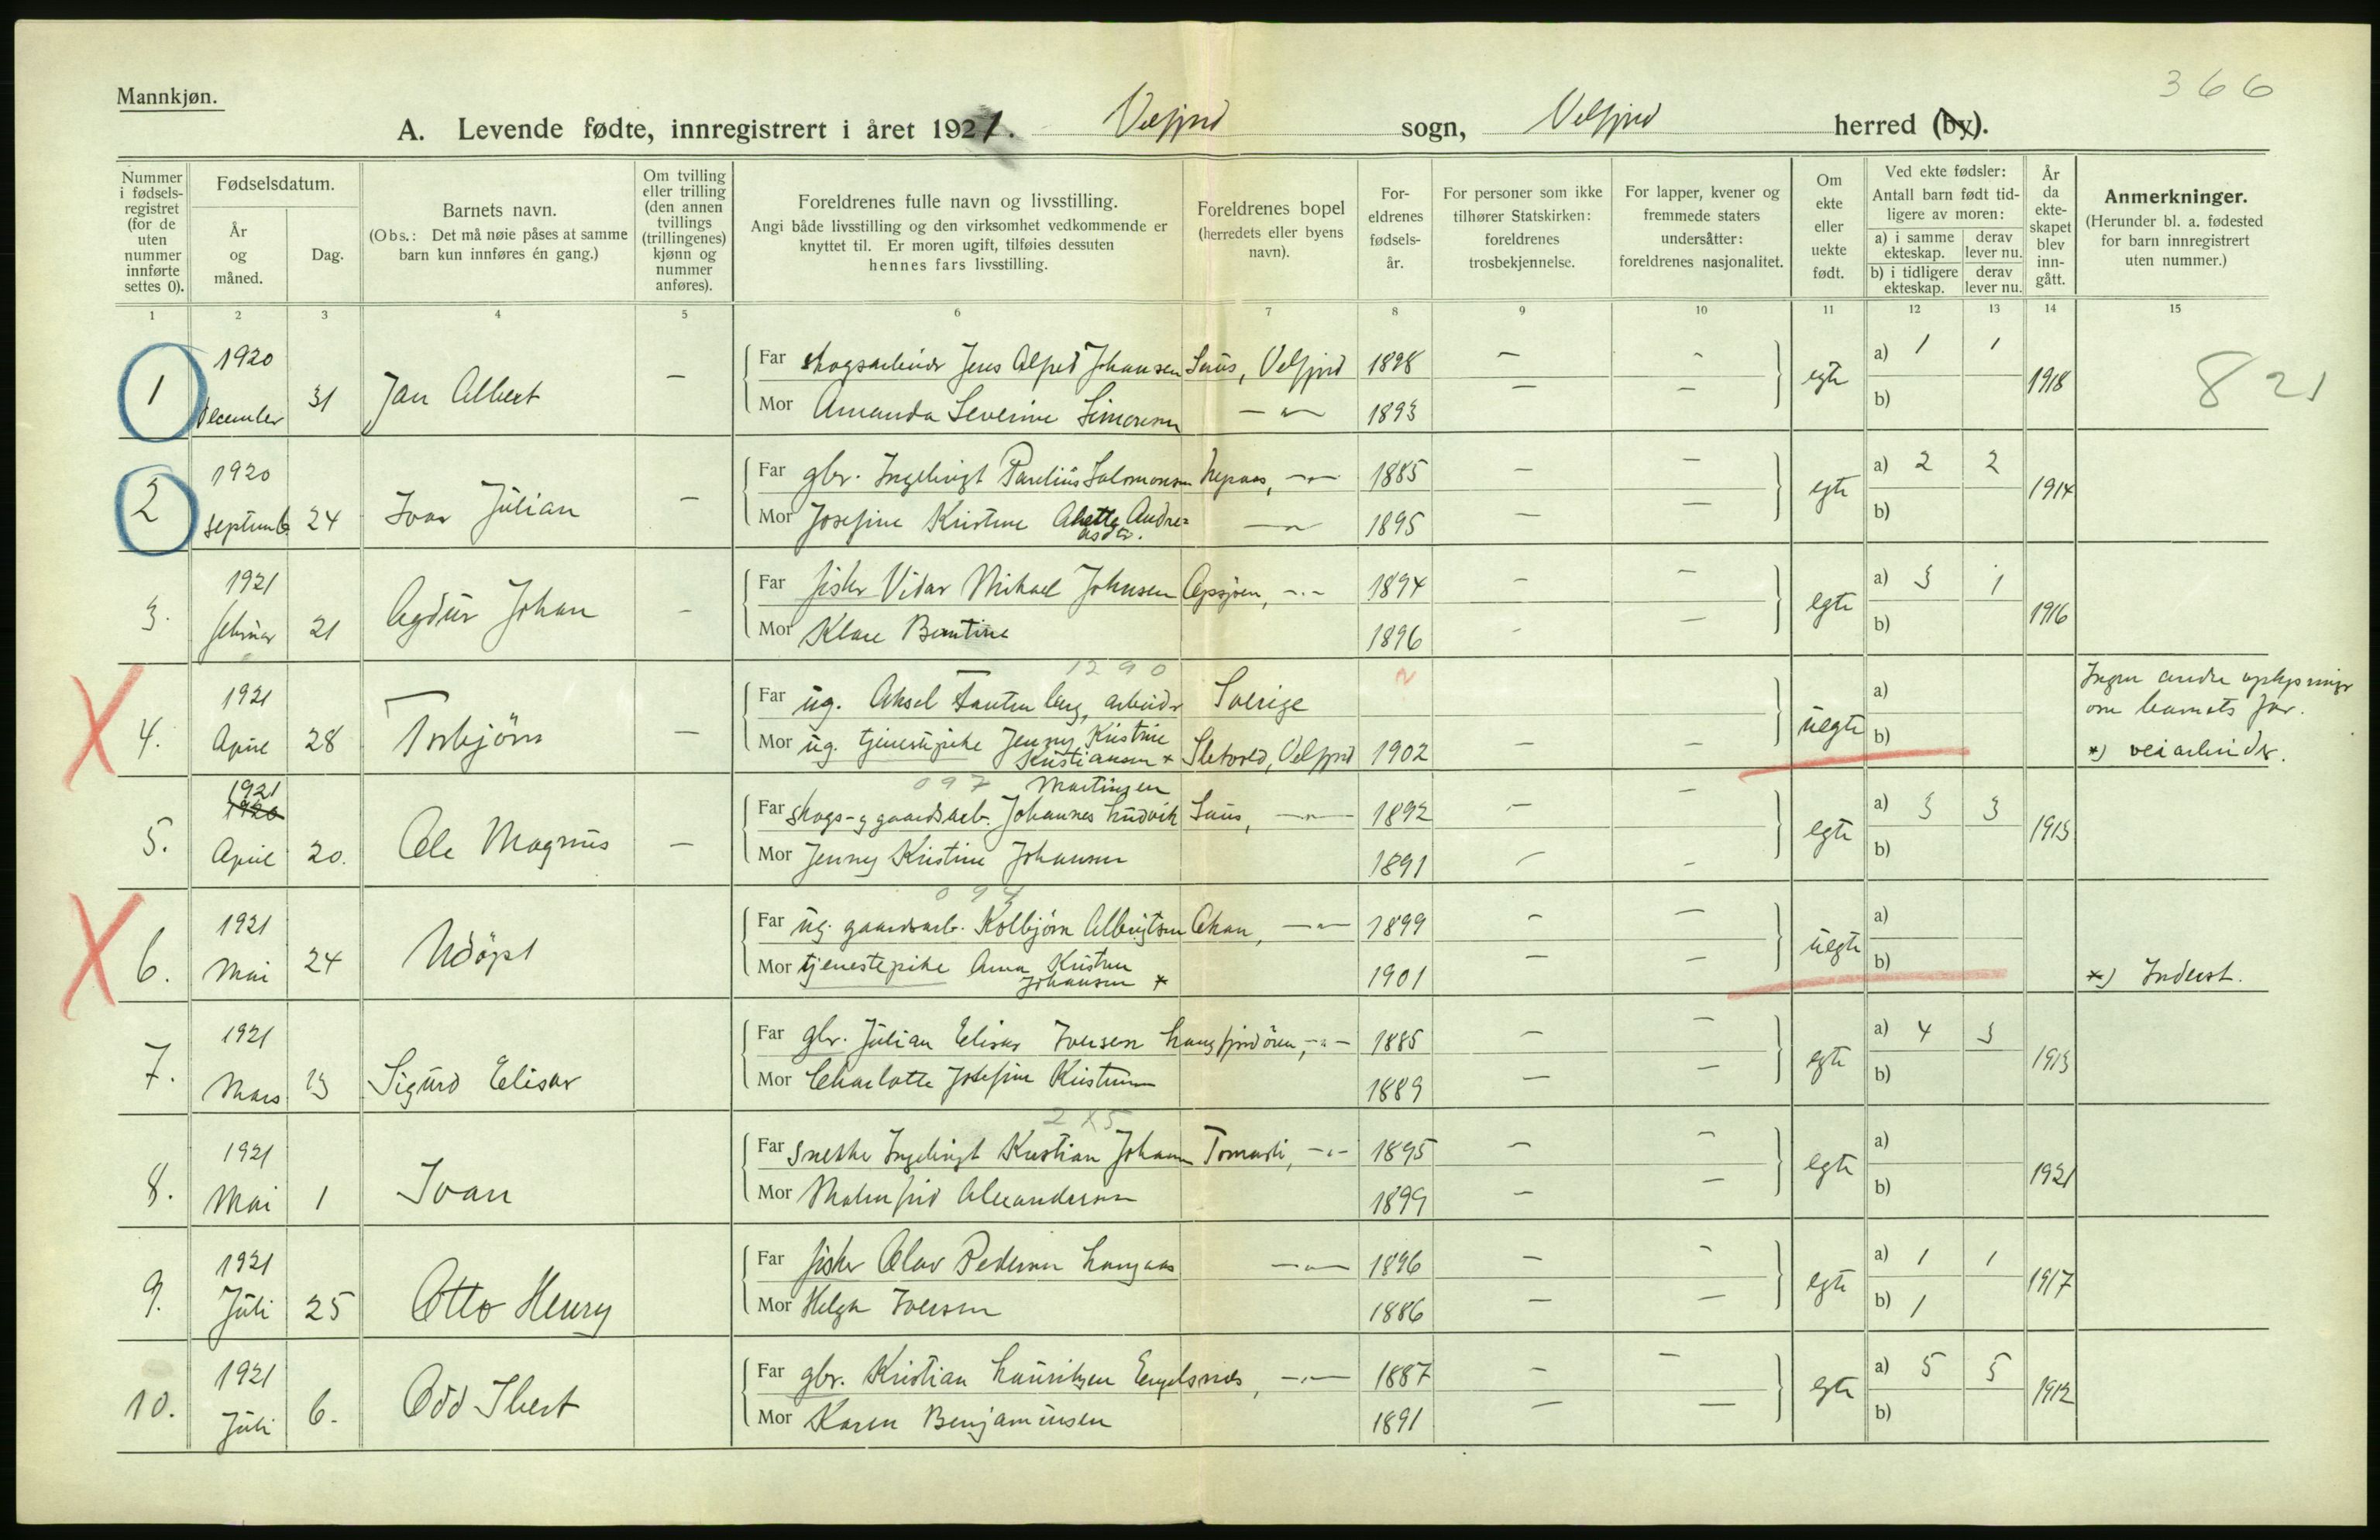 366
Mannkjøn.
A. Levende fødte, innregistrert i året 1921. Velfjord sogn, Velfjord herred (by).
Nummer i fødsels-registret (for de uten nummer innførte settes 0).
Fødselsdatum.
År og måned.
Dag.
Barnets navn.
(Obs.: Det må nøie påses at samme barn kun innføres én gang.)
Om tvilling eller trilling (den annen tvillings (trillingenes) kjønn og nummer anføres).
Foreldrenes fulle navn og livsstilling.
Angi både livsstilling og den virksomhet vedkommende er knyttet til. Er moren ugift, tilføies dessuten hennes fars livsstilling.
Foreldrenes bopel (herredets eller byens navn).
For-eldrenes fødsels-år.
For personer som ikke tilhører Statskirken: foreldrenes trosbekjennelse.
For lapper, kvener og fremmede staters undersåtter: foreldrenes nasjonalitet.
Om ekte eller uekte født.
Ved ekte fødsler:
Antall barn født tid-ligere av moren:
a) i samme ekteskap.
derav lever nu.
b) i tidligere ekteskap.
derav lever nu.
År da ekte-skapet blev inn-gått.
Anmerkninger.
(Herunder bl. a. fødested for barn innregistrert uten nummer.)
1 2 3 4 5 6 7 8 9 10 11 12 13 14 15
1 1920 December 31 Jan Albert —
Far skogsarbeider Jens Alfred Johansen Saus, Velfjord 1898 — — egte a) 1 1 1918 821
Mor Amanda Severine Simonsen — " — 1893 — — b)
2 1920 Septemb. 24 Ivar Julian —
Far gbr. Ingebrigt Parelius Salomonsen Nepaas, — " — 1885 — — egte a) 2 2 1914
Mor Josefine Kristine Anette Andre=asdtr. — " — 1895 — — b)
3. 1921 februar 21 Agdur Johan —
Far fisker Vidar Mikael Johnsen — " — 1894 — — egte a) 3 1 1916
Mor Klare Berntine 1896 — — b)
1290
4. 1921 April 28 Torbjörn —
Far ug. Aksel arbeider Sverige uegte a) Ingen andre oplysninger om barnets far.
Mor ug. tjenestepike Jenny Kristine Kristiansen * Sletvold, Velfjord 1902 — — b) *) veiarbeider.
097
5. 1921 1920 April 20. Ole Magnus —
Far skogs- og gaardsarb. Johannes Ludvik Martinsen Saus, — " — 1892 — — egte a) 3 3 1913
Mor Jenny Kristine Johansen 1891 — — b)
094
6. 1921 Mai 24 Udöpt
Far ug. gaardsarb. Kolbjörn Albrigtsen — " — 1899 — — uegte a)
Mor tjenestepike Anna Kristine Johansen * 1901 — — b) *) Inderst.
7. 1921 Mars 13 Sigurd Elisar
Far gbr. Julian Elisar Iversen Langfjordören, — " — 1885 — — egte a) 4 3 1913
Mor Charlotte Josefine Kristensen 1889 — — b)
8. 1921 Mai 1 Ivan
Far snekker Ingebrigt Kristian Johansen — " — 1895 — — egte a) 1921
Mor Malmfrid Alexandersen 1899 — — b)
9. 1921 Juli 25 Otto Henry
Far fisker Olav Pedersen Langaas — " — 1896 — — egte a) 1 1 1917
Mor Helga Iversen 1886 — — b) 1
10. 1921 Juli 6. Odd Ibert
Far gbr. Kristian Lauritzen Engelsnæs, — " — 1887 — — egte a) 5 5 1912
Mor Karen Benjaminsen 1891 — — b)